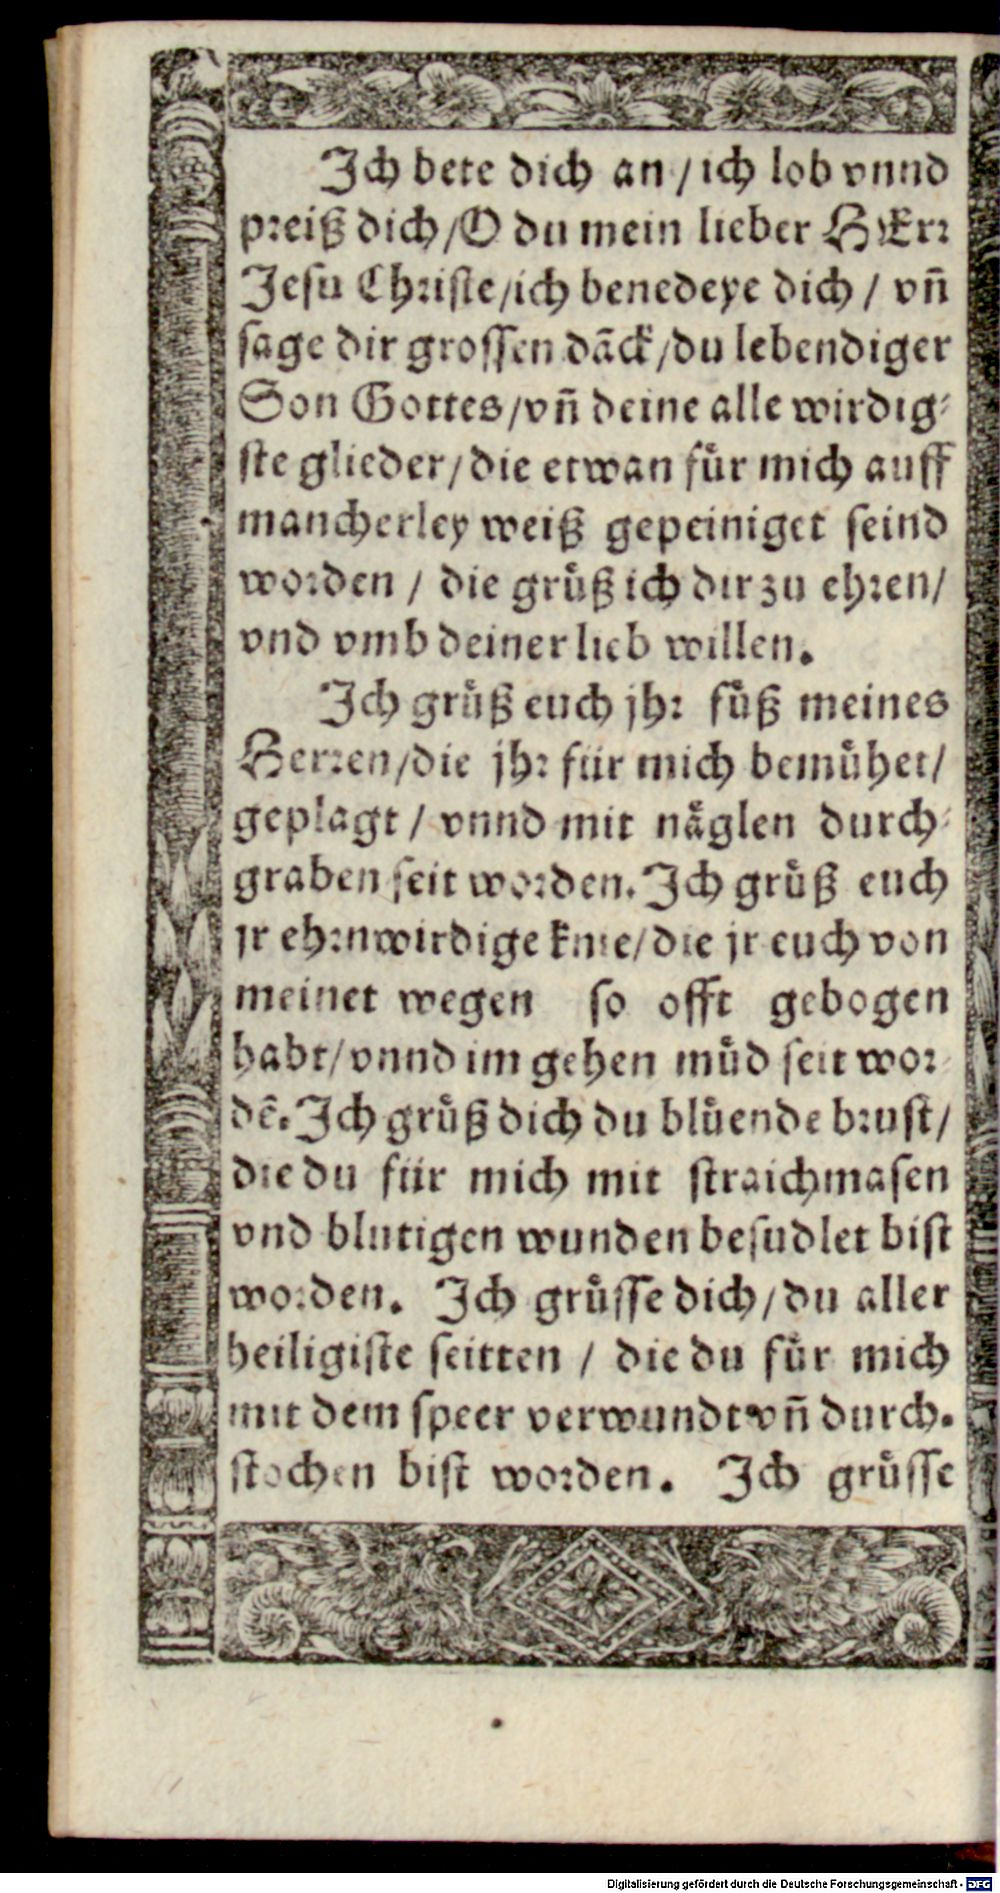 Ich bete dich an / ich lob vnnd
preiß dich / O du mein lieber HErr
Jesu Christe / ich benedeye dich / vñ
sage dir grossen dãck / du lebendiger
Son Gottes / vñ deine alle wirdig⸗
ste glieder / die etwan fuͤr mich auff
mancherley weiß gepeiniget seind
worden / die gruͤß ich dir zu ehren /
vnd vmb deiner lieb willen.
Ich gruͤß euch jhr fuͤß meines
Herren / die jhr für mich bemuͤhet /
geplagt / vnnd mit naͤglen durch⸗
graben seit worden. Ich gruͤß euch
jr ehrnwirdige knie / die jr euch von
meinet wegen so offt gebogen
habt / vnnd im gehen muͤd seit wor⸗
dẽ. Ich gruͤß dich du bluͤende brust /
die du für mich mit straichmasen
vnd blutigen wunden besudlet bist
worden. Ich gruͤsse dich / du aller
heiligiste seitten / die du fuͤr mich
mit dem speer verwundt vñ durch⸗
stochen bist worden. Ich gruͤsse
Digitalisierung gefördert durch die Deutsche Forschungsgemeinschaft - DFG